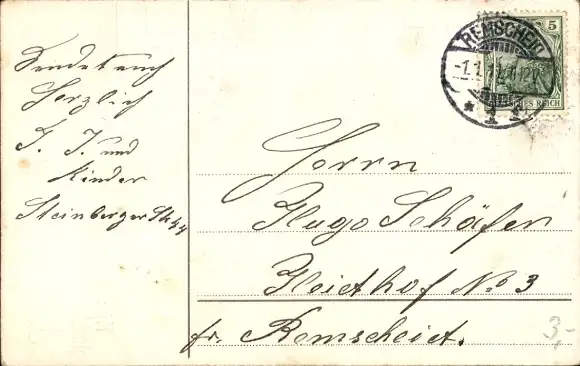 Sendet euch
Herzlich
F. J. und
Kinder
Steinberger Str 44
REMSCHEID
-1.1.
* 1 1
5
DEUTSCHES REICH
Herrn
Hugo Schäfer
No 3
fr. Remscheid.
3,-